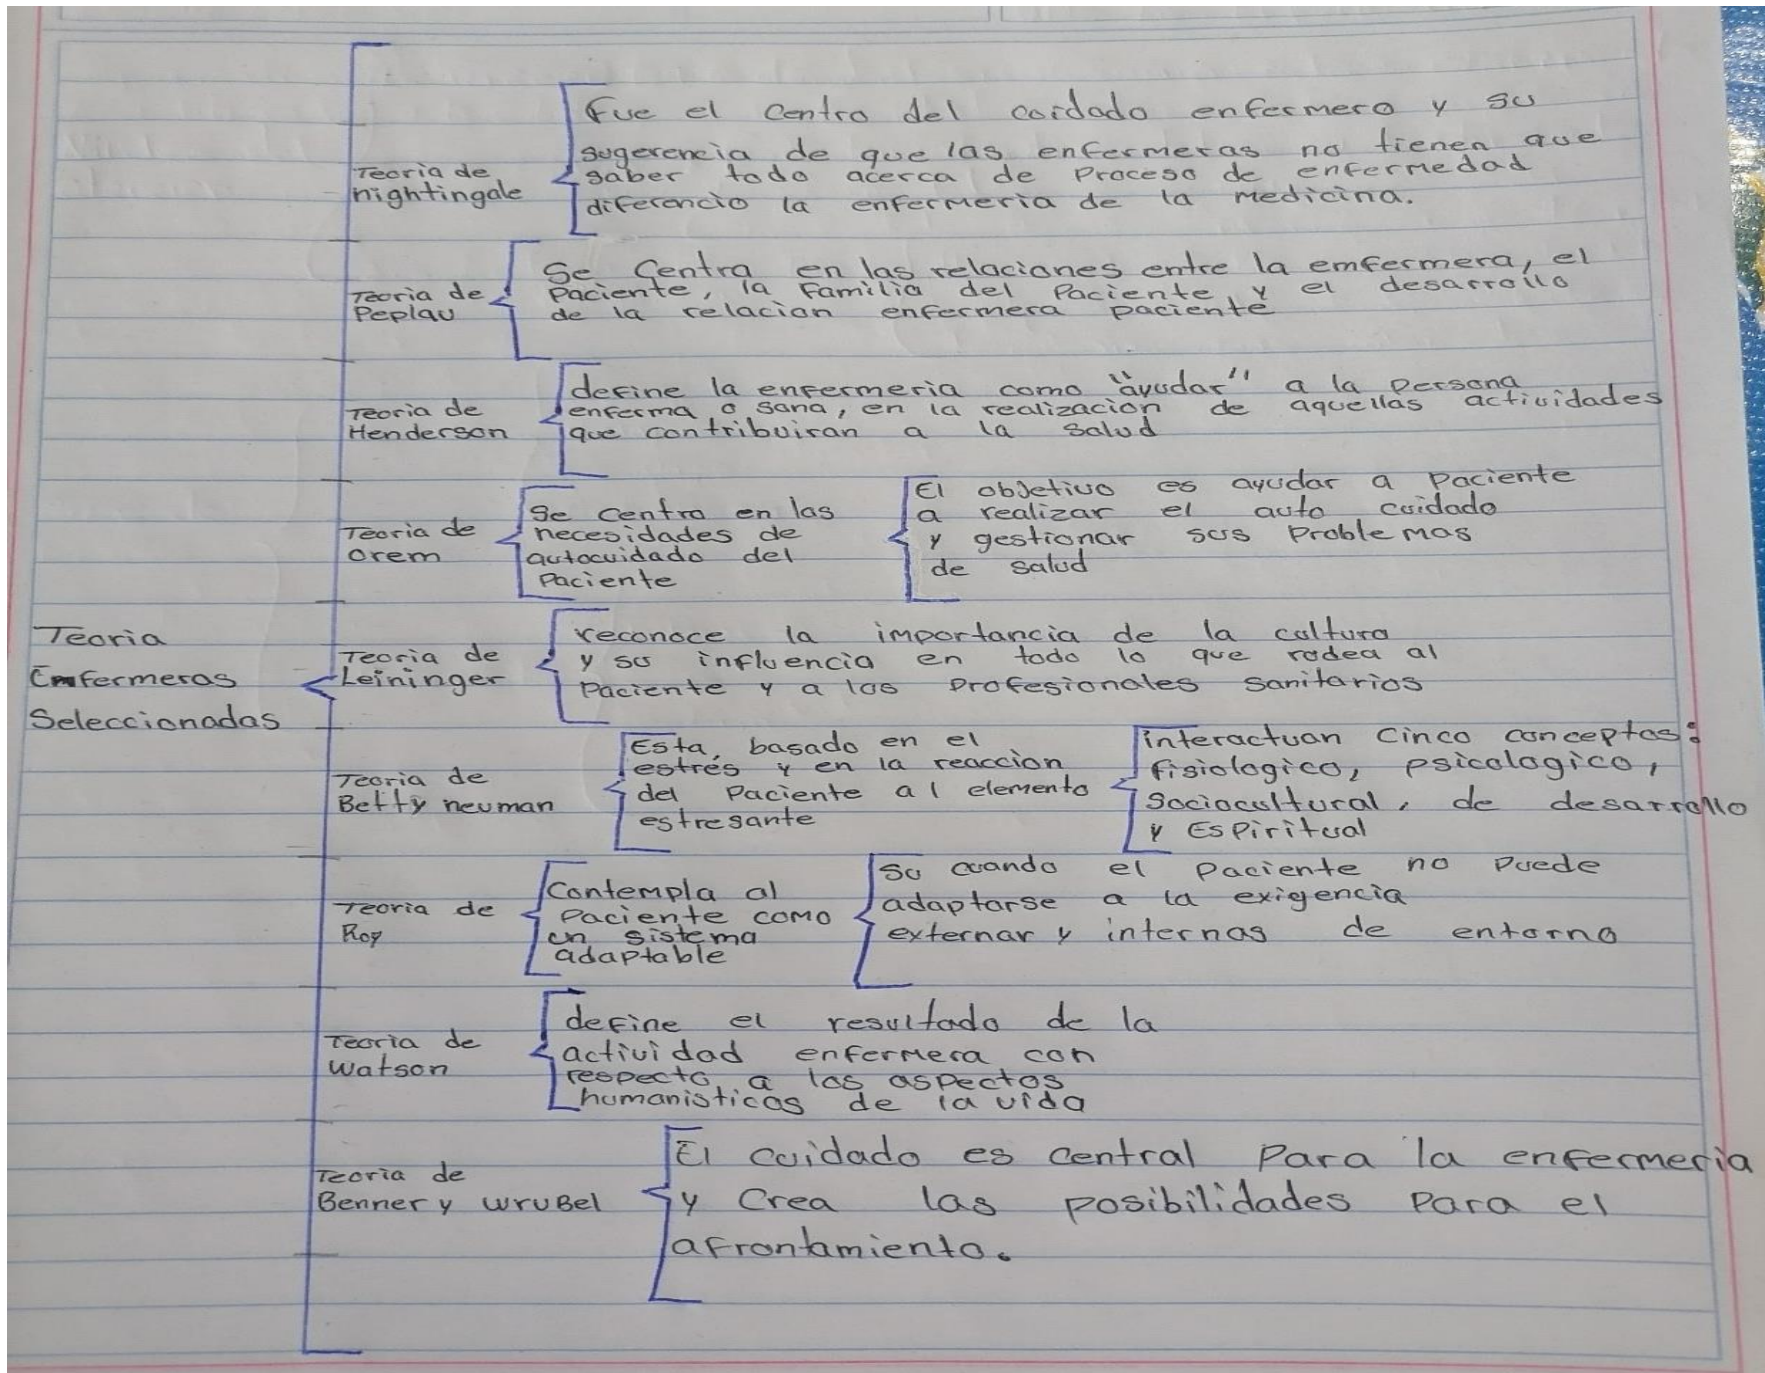 Teoria
Enfermeras
Seleccionadas
Teoria de
nightingale
Fue el centro del cuidado enfermero y su
sugerencia de que las enfermeras no tienen que
saber todo acerca de Proceso de enfermedad
diferencio la enfermeria de la medicina.
Teoria de
Peplau
Se Centra en las relaciones entre la emfermera, el
Paciente, la Familia del Paciente y el desarrollo
de la relacion enfermera paciente
Teoria de
Henderson
define la enfermeria como "ayudar" a la Persona
enferma o sana, en la realizacion de aquellas actividades
que contribuiran a la Salud
Teoria de
Orem
Se centra en las
necesidades de
autocuidado del
Paciente
El objetivo es ayudar a Paciente
a realizar el auto cuidado
y gestionar sus Problemas
de salud
Teoria de
Leininger
reconoce la importancia de la cultura
y su influencia en todo lo que rodea al
Paciente y a los Profesionales Sanitarios
Teoria de
Betty neuman
Esta basado en el
estrés y en la reaccion
del Paciente al elemento
estresante
interactuan Cinco conceptos:
fisiologico, psicologico,
Sociocultural, de desarrollo
y Espiritual
Teoria de
Roy
Contempla al
Paciente como
un sistema
adaptable
Su cuando el Paciente no Puede
adaptarse a la exigencia
externar y internas de entorno
Teoria de
Watson
define el resultado de la
actividad enfermera con
respecto a los aspectos
humanisticos de la vida
Teoria de
Benner y WruBel
El cuidado es central Para la enfermeria
y Crea las posibilidades Para el
afrontamiento.